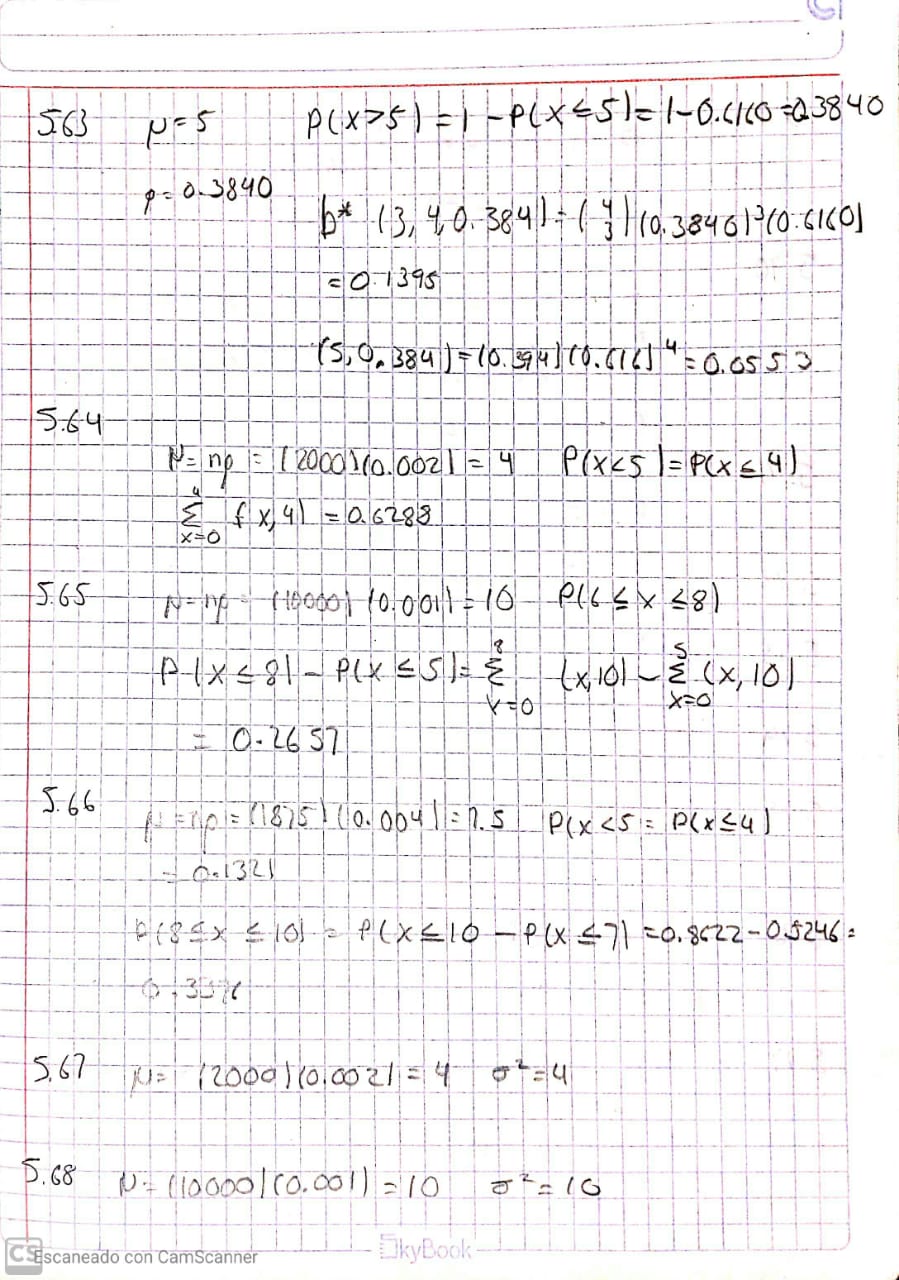 5.63 μ=5 P(x>5)=1-P(x≤5)=1-0.6160=0.3840
p=0.3840
b* (3,4,0.384)=(4 3)(0.3846)³(0.6160)
=0.1395
(5,0.384)=(0.394)(0.616)⁴=0.0553
5.64
μ=np=(2000)(0.002)=4 P(x<5)=P(x≤4)
4
Σ f x,4)=0.6288
x=0
5.65 μ=np=(10000)(0.001)=10 P(6≤x≤8)
P(x≤8)-P(x≤5)= 8 Σ x=0 (x,10)- 5 Σ x=0 (x,10)
=0.2657
5.66 μ=np=(1875)(0.004)=7.5 P(x<5=P(x≤4)
=0.1321
P(8≤x≤10)=P(x≤10-P(x≤7)=0.8622-0.5246=
0.3376
5.67 μ=(2000)(0.002)=4 σ²=4
5.68 μ=(10000)(0.001)=10 σ²=10
SkyBook
CS Escaneado con CamScanner